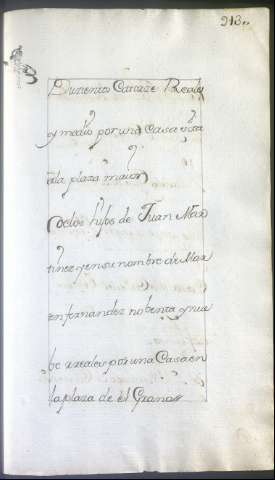 213
Quinientos Catorze Reales
y medio por una Casa sita
ala plaza maior
Oelos hijos de Juan Mar
tinez y en su nombre de Mar
tin fernandez nobenta y nue
be rreales por una Casa en
la plaza de el Grano